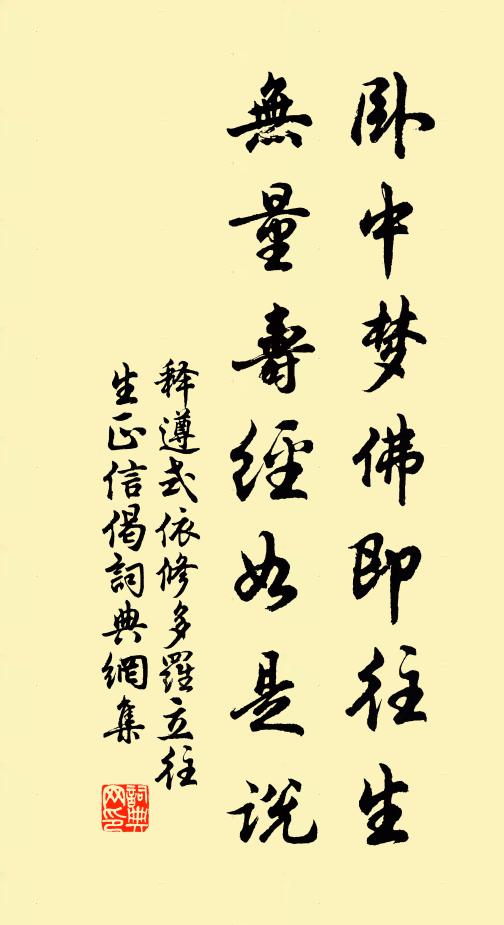 卧中梦佛即往生
無量壽經如是説
释遵式依修多羅立往
生正信偈詞典網集
詞典网印